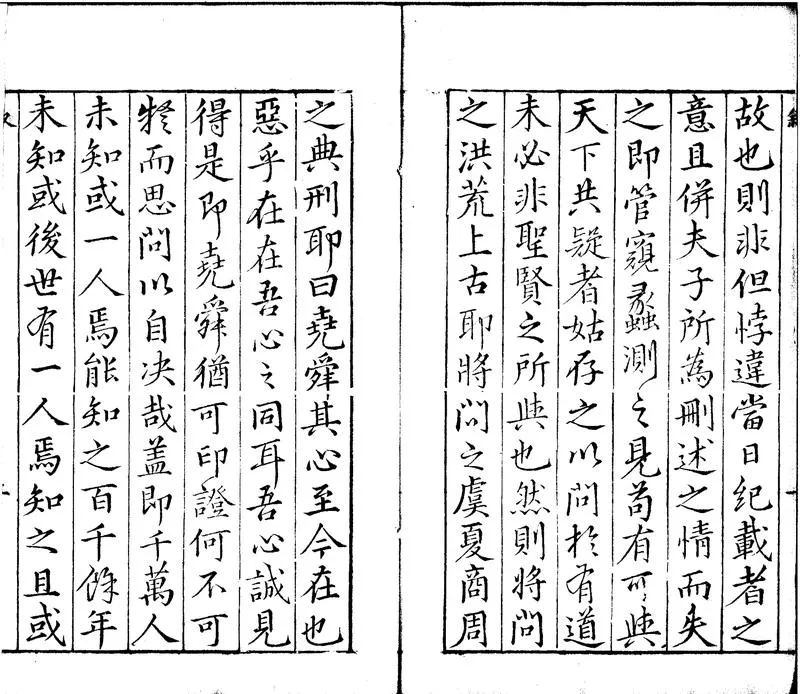 故也則非但悖違當日紀載者之
意且併夫子所為刪述之情而失
之即管窺蠡測之見苟有可與
天下共疑者姑存之以問於有道
未必非聖賢之所與也然則將問
之洪荒上古耶將問之虞夏商周
之典刑耶曰堯舜其心至今在也
惡乎在在吾心之同耳吾心誠見
得是即堯舜猶可印證何不可
疑而思問以自决哉盖即千萬人
未知或一人焉能知之百千餘年
未知或後世有一人焉知之且或